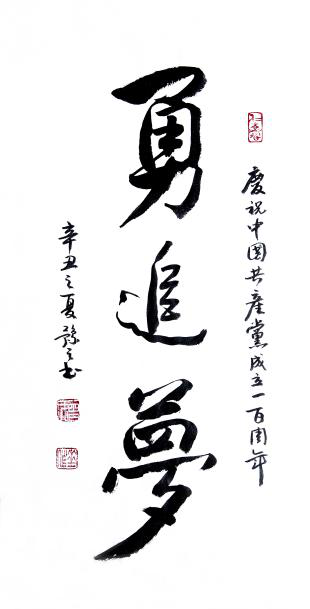 慶祝中國共產黨成立一百周年
勇追夢
辛丑之夏